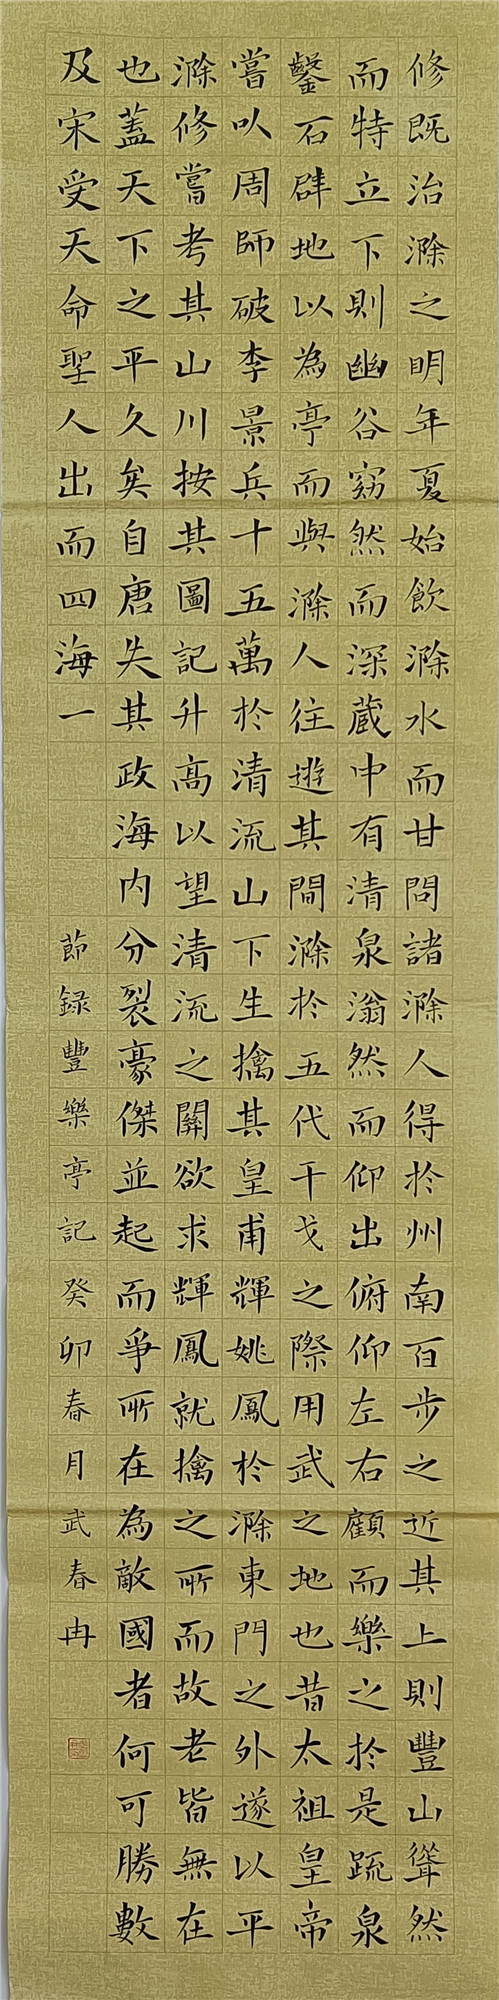 修既治滁之明年夏始飲滁水而甘問諸滁人得於州南百步之近其上則豐山聳然
而特立下則幽谷窈然而深藏中有清泉滃然而仰出俯仰左右顧而樂之於是疏泉
鑿石辟地以為亭而與滁人往遊其間滁於五代干戈之際用武之地也昔太祖皇帝
嘗以周師破李景兵十五萬於清流山下生擒其皇甫輝姚鳳於滁東門之外遂以平
滁修嘗考其山川按其圖記升高以望清流之關欲求輝鳳就擒之所而故老皆無在
也蓋天下之平久矣自唐失其政海內分裂豪傑並起而爭所在為敵國者何可勝數
及宋受天命聖人出而四海一
節録豐樂亭記癸卯春月武春冉